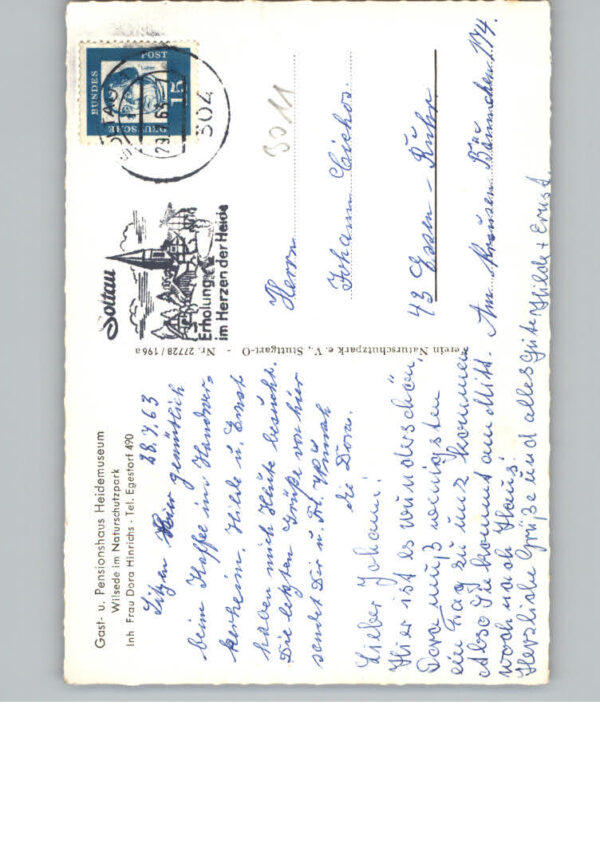 Gast- u. Pensionshaus Heidemuseum
Wilsede im Naturschutzpark
Inh Frau Dora Hinrichs - Tel. Egestorf 490
28.7.63
Sitzen hier gemütlich
beim Kaffee im Handwer-
kerheim. Hilde u. Ernst
haben mich Heute besucht.
Die letzten Grüße von hier
sendet Dir u. Fr.
die Dora.
Lieber Johann!
Hier ist es wunderschön,
Dora muß wenigsten
ein Tag zu unz kommen
Also Sie kommt am Mitt-
woch nach Haus!
Herzliche Grüße und alles Gute Hilde + Ernst
Verein Naturschutzpark e. V., Stuttgart-O - Nr. 27728/196a
Soltau
Erholung
im Herzen der Heide
DEUTSCHE
BUNDES
POST
15
SOLTAU
29.7.63
304
3011
Herrn
Johann Cichos
43 Essen-Ruhr
Am Krausen Bäumchen 174.